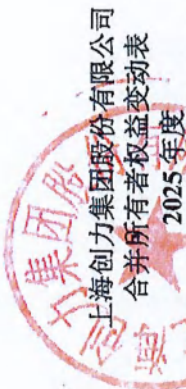 上海创力集团股份有限公司
合并所有者权益变动表
2025年度
力集团